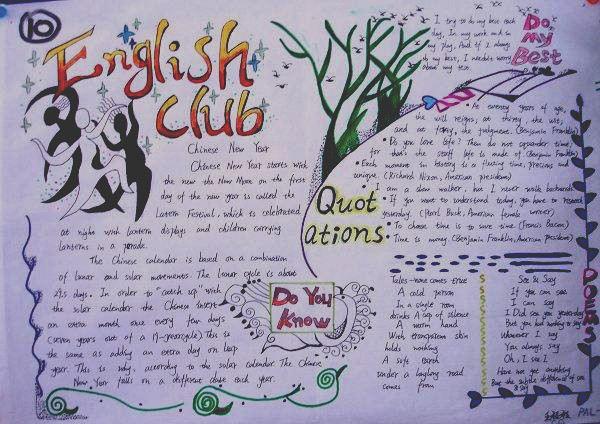 10
English
Club
Chinese New Year
Chinese New Year starts with
the new the New Moon on the first
day of the new year is called the
Latern Festival, which is celebrated
at night with lantern displays and children carrying
lanterns in a parade.
The Chinese calendar is based on a combination
of lunar and solar movements. The lunar cycle is about
29.5 days. In order to "catch up" with
the solar calendar the Chinese insert
an extra month once every few days
(seven years out of a 19-yearcycle) This is
the same as adding an extra day on leap
year. This is why, according to the solar calendar. The Chinese
New Year falls on a different date each year.
Do You
Know
I try to do my best each
day, In my work and in
my play, And if I always
do my best, I needn't worry
about my test.
Do
My
Best
Quot
ations:
• At twenty years of age,
the will reigns; at thirty, the wit;
and at forty, the judgment. (Benjamin Franklin)
• Do you love life? Then do not squander time,
for that's the stuff life is made of. (Benjamin Franklin)
• Each moment in history is a fleeting time, precious and
unique. (Richard Nixon, American president)
I am a slow walker, but I never walk backwards.
• If you want to understand today, you have to research
yesterday. (Pearl Buck, American female writer)
• To choose time is to save time. (Francis Bacon)
Time is money. (Benjamin Franklin, American president)
POEMS
Tales-none comes true
A cold person
In a single room
drinks A cup of silence
A warm hand
With transparent skin
holds nothing
A safe
under a road
comes from
See & Say
If you can see
I can say
I Did see you yesterday
But you had nothing to say
Whatever I say
You always say
Oh, I see I
Have not got anything
But the subtle difference of see
& say
PAL-